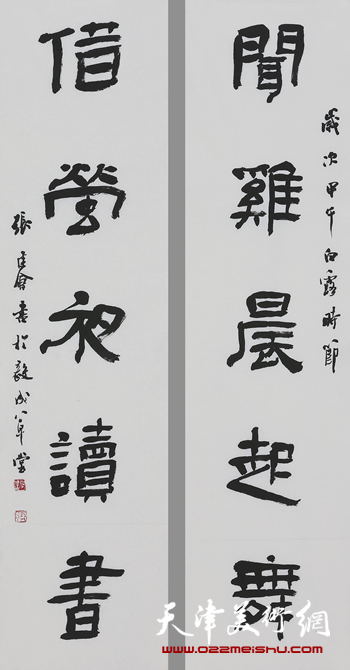 歲次甲午白露時節
聞雞晨起舞
借螢夜讀書
天津美術網
www.022meishu.com